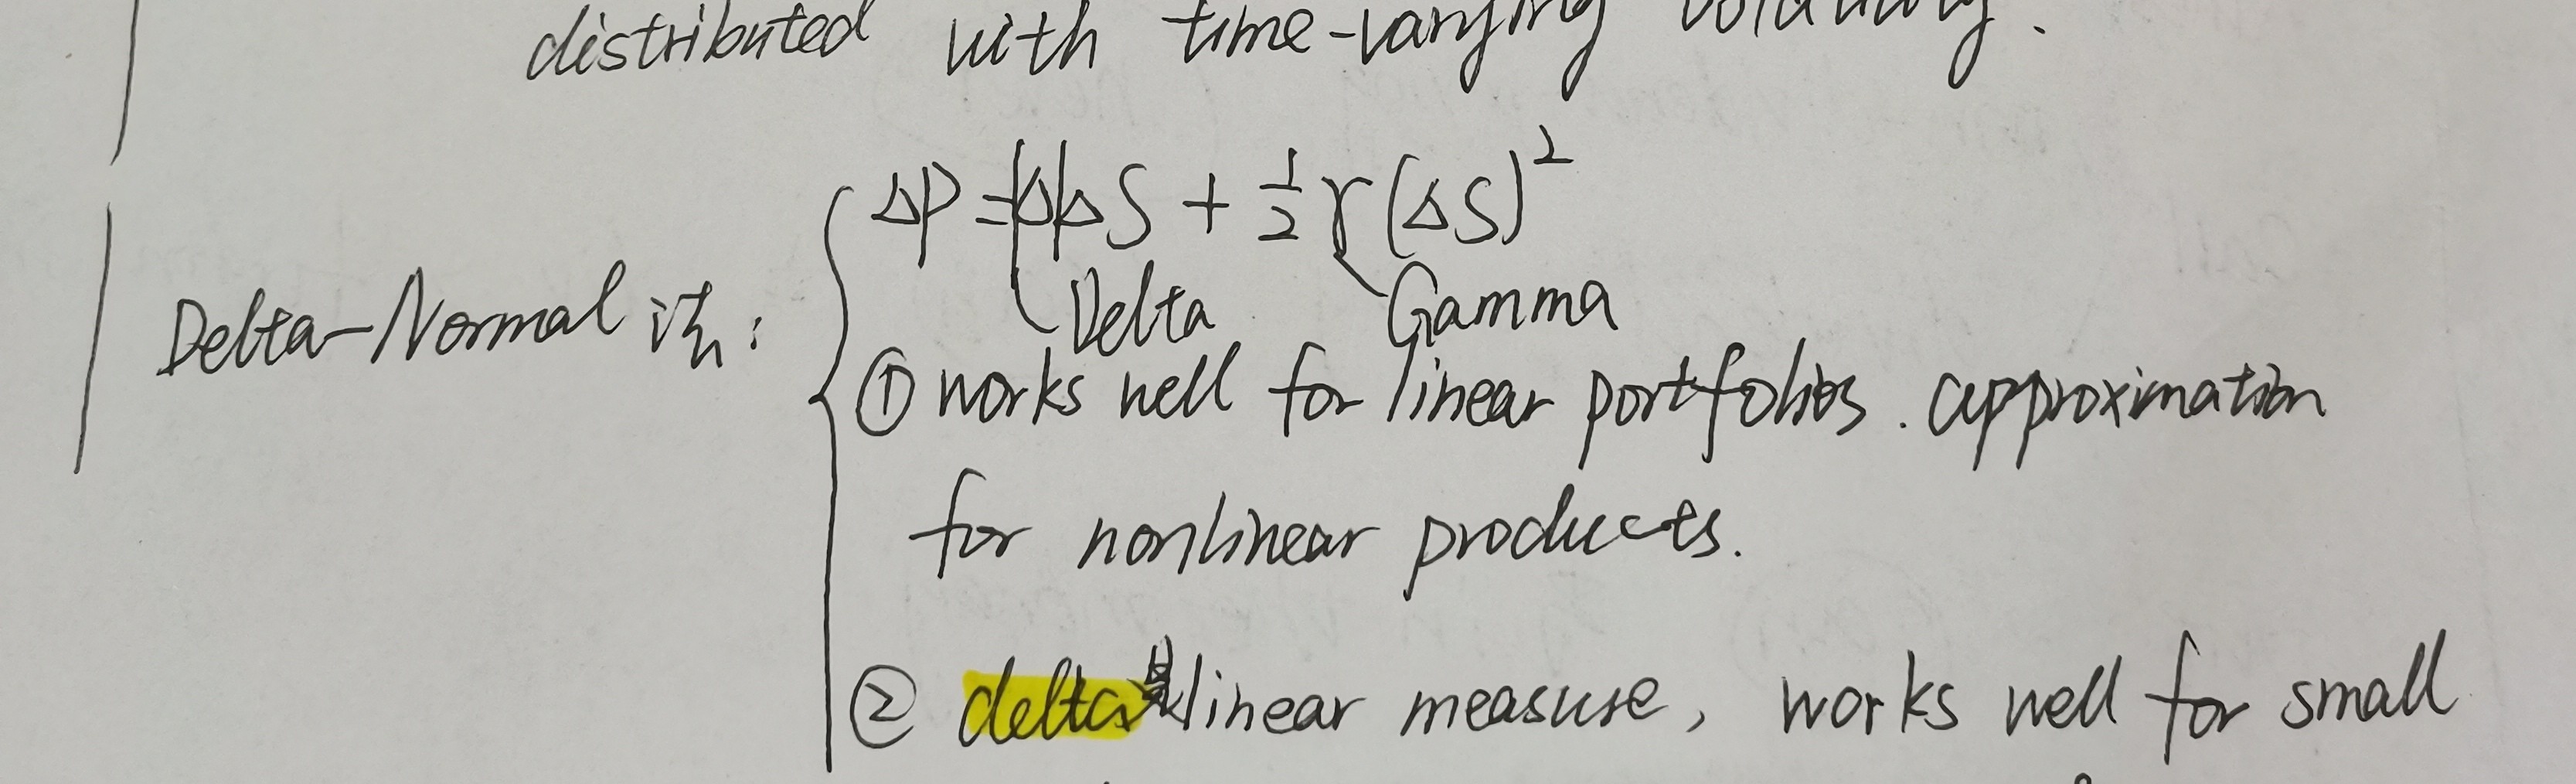 distributed with time-varying volatility.
ΔP = |Δ|ΔS + ½γ(ΔS)²
Delta Gamma
Delta-Normal 法:
① works well for linear portfolios. approximation
for nonlinear products.
② delta 是 linear measure, works well for small